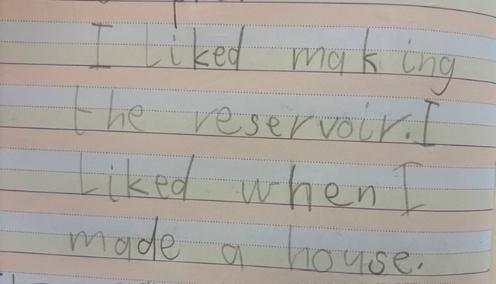 I liked making
the reservoir. I
liked when I
made a house.